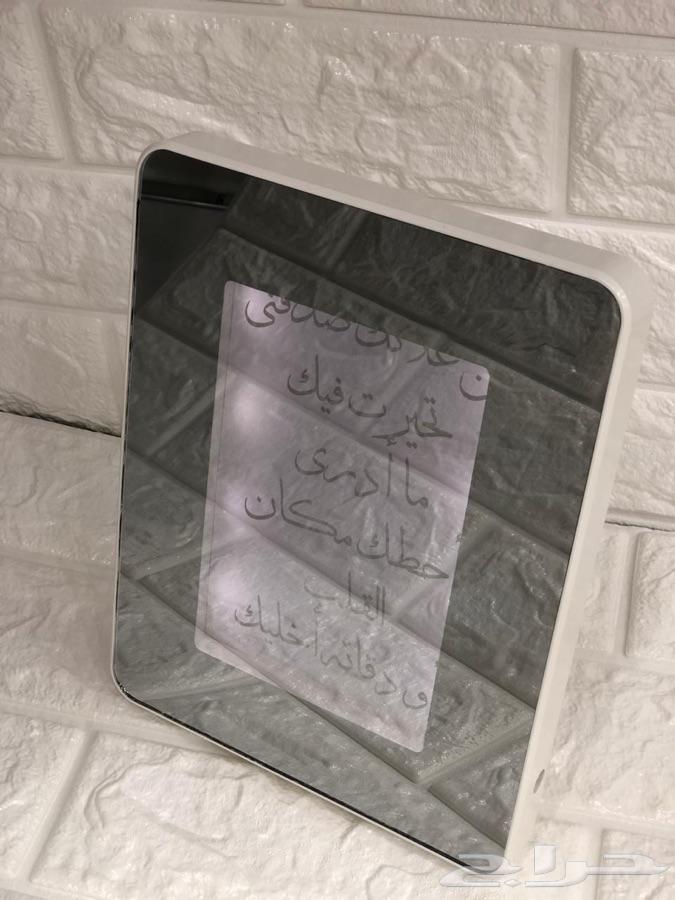 ن غلاتك صدقني
تحيرت فيك
ما أدرى
أحطك مكان
القلب
و دقاته أخليك
حراج